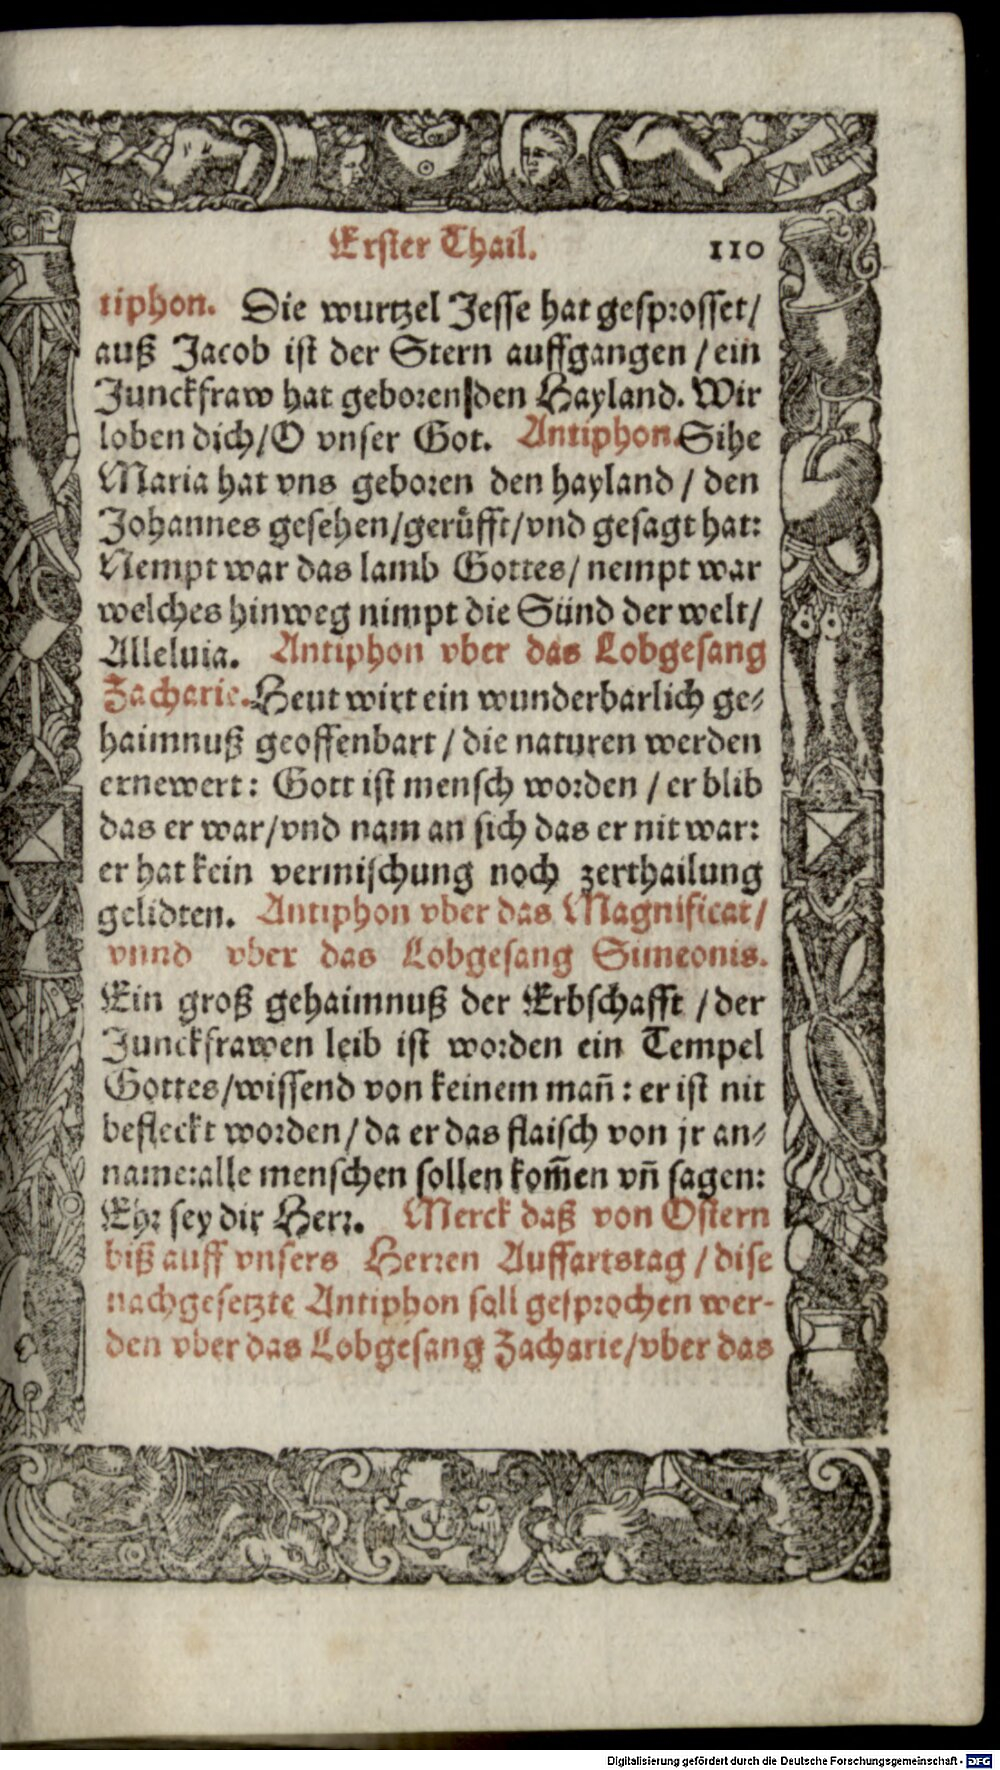 Erster Thail. 110
tiphon. Die wurtzel Jesse hat gesprosset/
auß Jacob ist der Stern auffgangen / ein
Junckfraw hat geboren/den Hayland. Wir
loben dich/O vnser Got. Antiphon. Sihe
Maria hat vns geboren den hayland / den
Johannes gesehen/gerůfft/vnd gesagt hat:
Nempt war das lamb Gottes/ nempt war
welches hinweg nimpt die Sünd der welt/
Alleluia. Antiphon vber das Lobgesang
Zacharie. Heut wirt ein wunderbarlich ge-
haimnuß geoffenbart / die naturen werden
ernewert: Gott ist mensch worden / er blib
das er war/vnd nam an sich das er nit war:
er hat kein vermischung noch zerthailung
gelidten. Antiphon vber das Magnificat/
vnnd vber das Lobgesang Simeonis.
Ein groß gehaimnuß der Erbschafft / der
Junckfrawen leib ist worden ein Tempel
Gottes/wissend von keinem mañ: er ist nit
befleckt worden/ da er das flaisch von jr an-
name:alle menschen sollen kom̃en vñ sagen:
Ehr sey dir Herr. Merck daß von Ostern
biß auff vnsers Herren Auffartstag / dise
nachgesetzte Antiphon soll gesprochen wer-
den vber das Lobgesang Zacharie/vber das
Digitalisierung gefördert durch die Deutsche Forschungsgemeinschaft - DFG